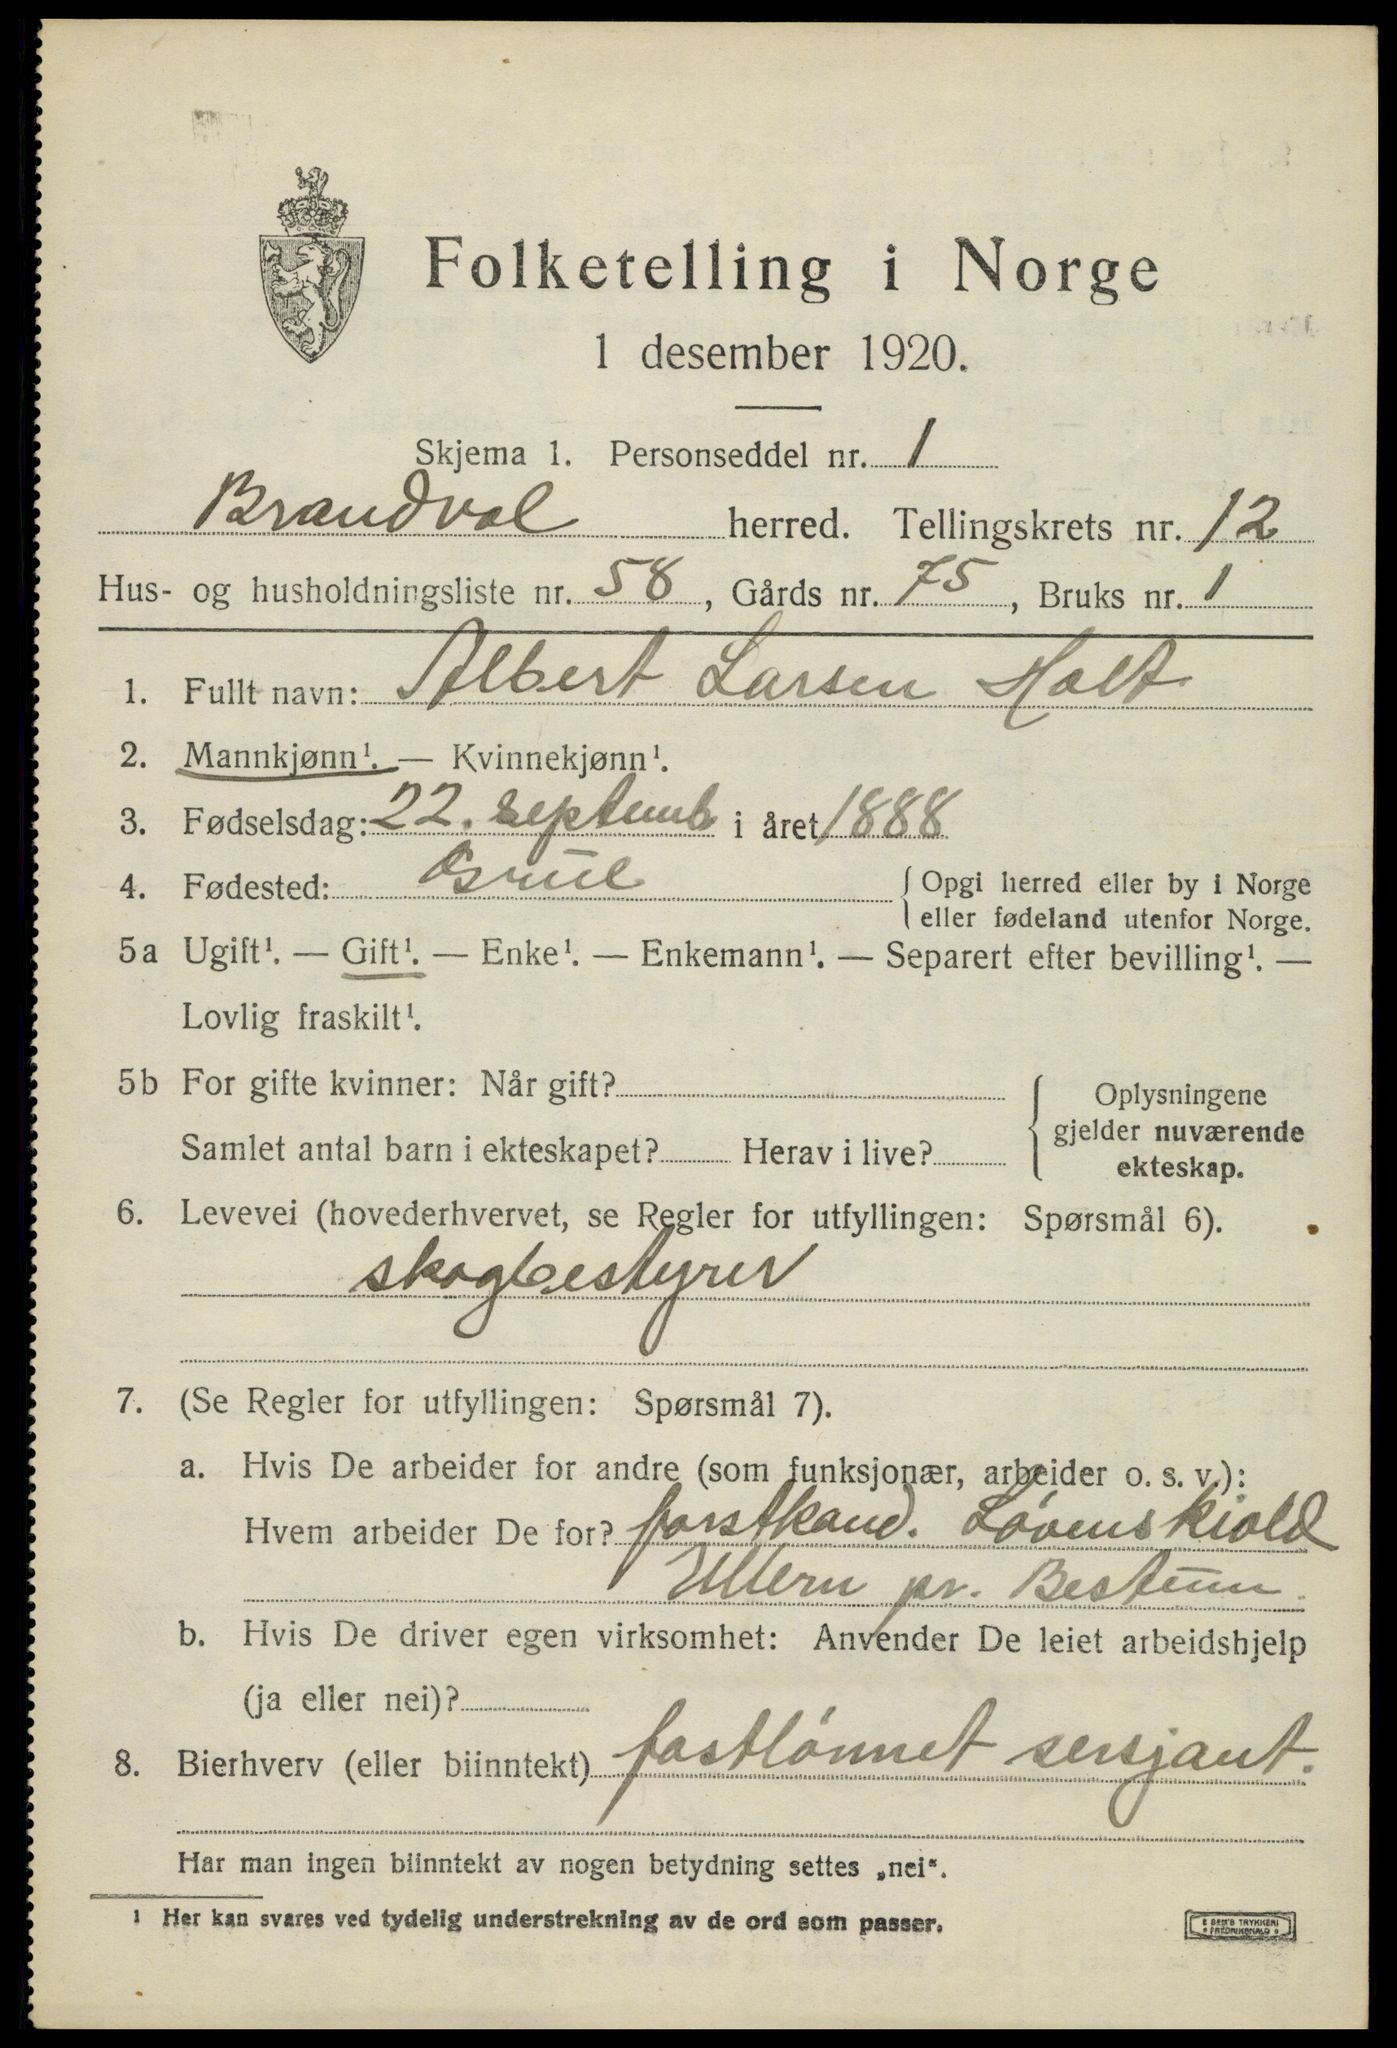 Folketelling i Norge
1 desember 1920.
Skjema 1. Personseddel nr. 1
Brandval herred. Tellingskrets nr. 12
Hus- og husholdningsliste nr. 58, Gårds nr. 75, Bruks nr. 1
1. Fullt navn: Albert Larsen Holt
2. Mannkjønn¹. — Kvinnekjønn¹.
3. Fødselsdag: 22. septemb i året 1888
4. Fødested: Grue { Opgi herred eller by i Norge
eller fødeland utenfor Norge.
5a Ugift¹. — Gift¹. — Enke¹. — Enkemann¹. — Separert efter bevilling¹. —
Lovlig fraskilt¹.
5b For gifte kvinner: Når gift?
Samlet antal barn i ekteskapet? Herav i live?
{ Oplysningene
gjelder nuværende
ekteskap.
6. Levevei (hovederhvervet, se Regler for utfyllingen: Spørsmål 6).
skogbestyrer
7. (Se Regler for utfyllingen: Spørsmål 7).
a. Hvis De arbeider for andre (som funksjonær, arbeider o. s. v.):
Hvem arbeider De for? forstkand. Løvenskiold
Ullern pr. Bestum
b. Hvis De driver egen virksomhet: Anvender De leiet arbeidshjelp
(ja eller nei)?
8. Bierhverv (eller biinntekt) fastlønnet sersjant.
Har man ingen biinntekt av nogen betydning settes „nei“.
1 Her kan svares ved tydelig understrekning av de ord som passer.
SEM'S TRYKKERI
FREDRIKSHALD